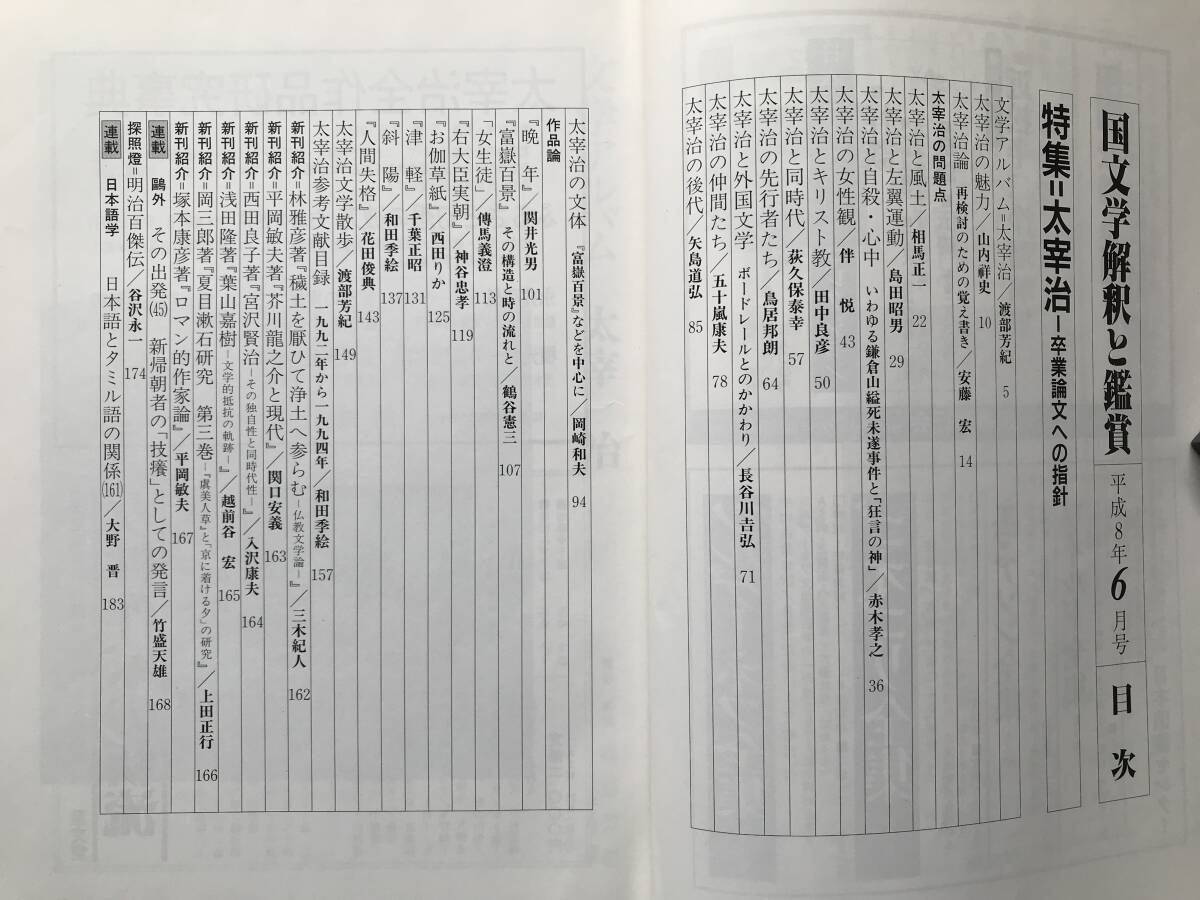 国文学解釈と鑑賞 平成8年6月号 目次
特集=太宰治―卒業論文への指針
文学アルバム=太宰治/渡部芳紀 5
太宰治の魅力/山内祥史 10
太宰治論 再検討のための覚え書き/安藤 宏 14
太宰治の問題点
太宰治と風土/相馬正一 22
太宰治と左翼運動/島田昭男 29
太宰治と自殺・心中 いわゆる鎌倉山縊死未遂事件と「狂言の神」/赤木孝之 36
太宰治の女性観/伴 悦 43
太宰治とキリスト教/田中良彦 50
太宰治と同時代/荻久保泰幸 57
太宰治の先行者たち/鳥居邦朗 64
太宰治と外国文学 ボードレールとのかかわり/長谷川吉弘 71
太宰治の仲間たち/五十嵐康夫 78
太宰治の後代/矢島道弘 85
太宰治の文体 『富嶽百景』などを中心に/岡崎和夫 94
作品論
『晩 年』/関井光男 101
『富嶽百景』 その構造と時の流れと/鶴谷憲三 107
「女生徒」/傳馬義澄 113
『右大臣実朝』/神谷忠孝 119
『お伽草紙』/西田りか 125
『津 軽』/千葉正昭 131
『斜 陽』/和田季絵 137
『人間失格』/花田俊典 143
太宰治文学散歩/渡部芳紀 149
太宰治参考文献目録 一九九二年から一九九四年/和田季絵 157
新刊紹介=林雅彦著『穢土を厭ひて浄土へ参らむ―仏教文学論―』/三木紀人 162
新刊紹介=平岡敏夫著『芥川龍之介と現代』/関口安義 163
新刊紹介=西田良子著『宮沢賢治―その独自性と同時代性―』/入沢康夫 164
新刊紹介=浅田隆著『葉山嘉樹―文学的抵抗の軌跡―』/越前谷 宏 165
新刊紹介=岡三郎著『夏目漱石研究 第三巻―『虞美人草』と「京に着ける夕」の研究』/上田正行 166
新刊紹介=塚本康彦著『ロマン的作家論』/平岡敏夫 167
連載 鷗外 その出発(45) 新帰朝者の「技癢」としての発言/竹盛天雄 168
探照燈=明治百傑伝/谷沢永一 174
連載 日本語学 日本語とタミル語の関係(161)/大野 晋 183